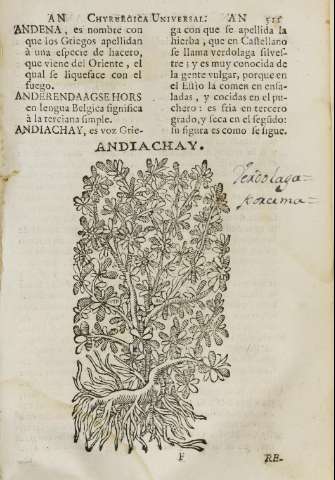 AN CHYRURGICA UNIVERSAL. AN 511
ANDENA, es nombre con
que los Griegos apellidan
à una especie de hacero,
que viene del Oriente, el
qual se liqueface con el
fuego.
ANDERENDAAGSEHORS
en lengua Belgica significa
à la terciana simple.
ANDIACHAY, es voz Grie-
ga con que se apellida la
hierba, que en Castellano
se llama verdolaga silves-
tre; y es muy conocida de
la gente vulgar, porque en
el Estio la comen en ensa-
ladas, y cocidas en el pu-
chero: es fria en tercero
grado, y seca en el segūdo:
su figura es como se sigue.
ANDIACHAY.
Verdolaga
F
RE-